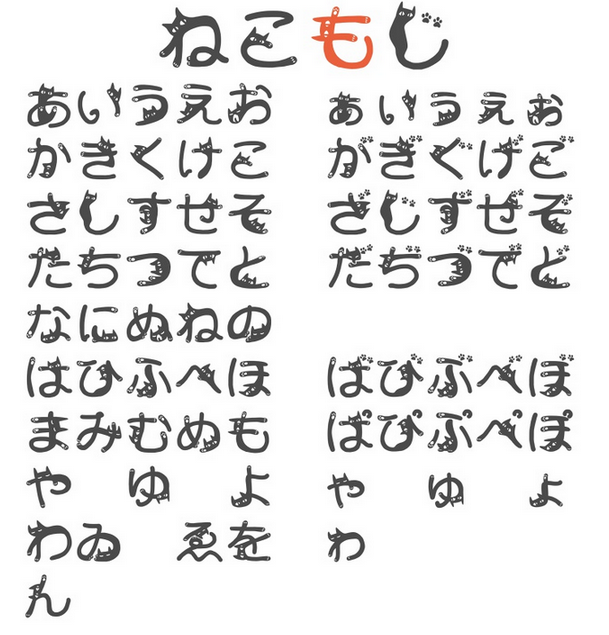 ねこもじ
あいうえお ぁぃぅぇぉ
かきくけこ がぎぐげご
さしすせそ ざじずぜぞ
たちつてと だぢづでど
なにぬねの
はひふへほ ばびぶべぼ
まみむめも ぱぴぷぺぽ
や ゆ よ ゃ ゅ ょ
わゐ ゑを ゎ
ん